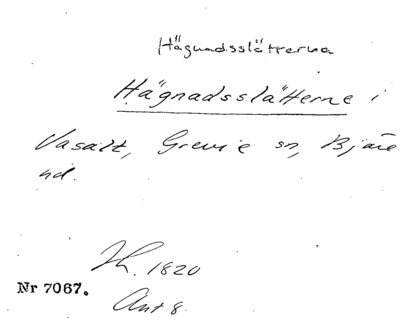 Hägnadsslätterna
Hägnadsslätterne i
Vasalt, Grevie sn, Bjäre
hd.
Lh. 1820
Nr 7067.
Ant 8.